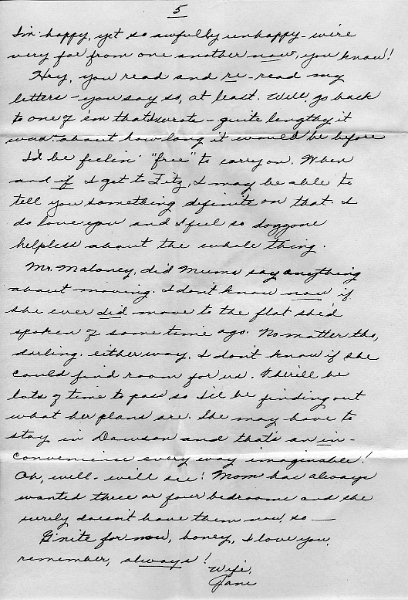 5
I'm happy, yet so awfully unhappy - we're
very far from one another now, you know!
Hey, you read and re-read my
letters - you say so, at least. Will go back
to one of 'em that I wrote - quite lengthy it
was about how long it would be before
I'd be feelin' "free" to carry on. When
and if I get to Fitz, I may be able to
tell you something definite on that. I
do love you and I feel so doggone
helpless about the whole thing.
Mr. Maloney, did Mums say anything
about moving. I don't know now if
she ever did move to the flat she'd
spoken of some time ago. No matter tho,
darling, either way, I don't know if she
could find room for us. There'll be
lots of time to pass so I'll be finding out
what her plans are. She may have to
stay in Dawson and that's an in-
convenience every way imaginable!
Oh, well - will see! Mom has always
wanted three or four bedrooms and she
surely doesn't have them now, so —
G'nite for now, honey, I love you,
remember, always!
Wife,
Jane